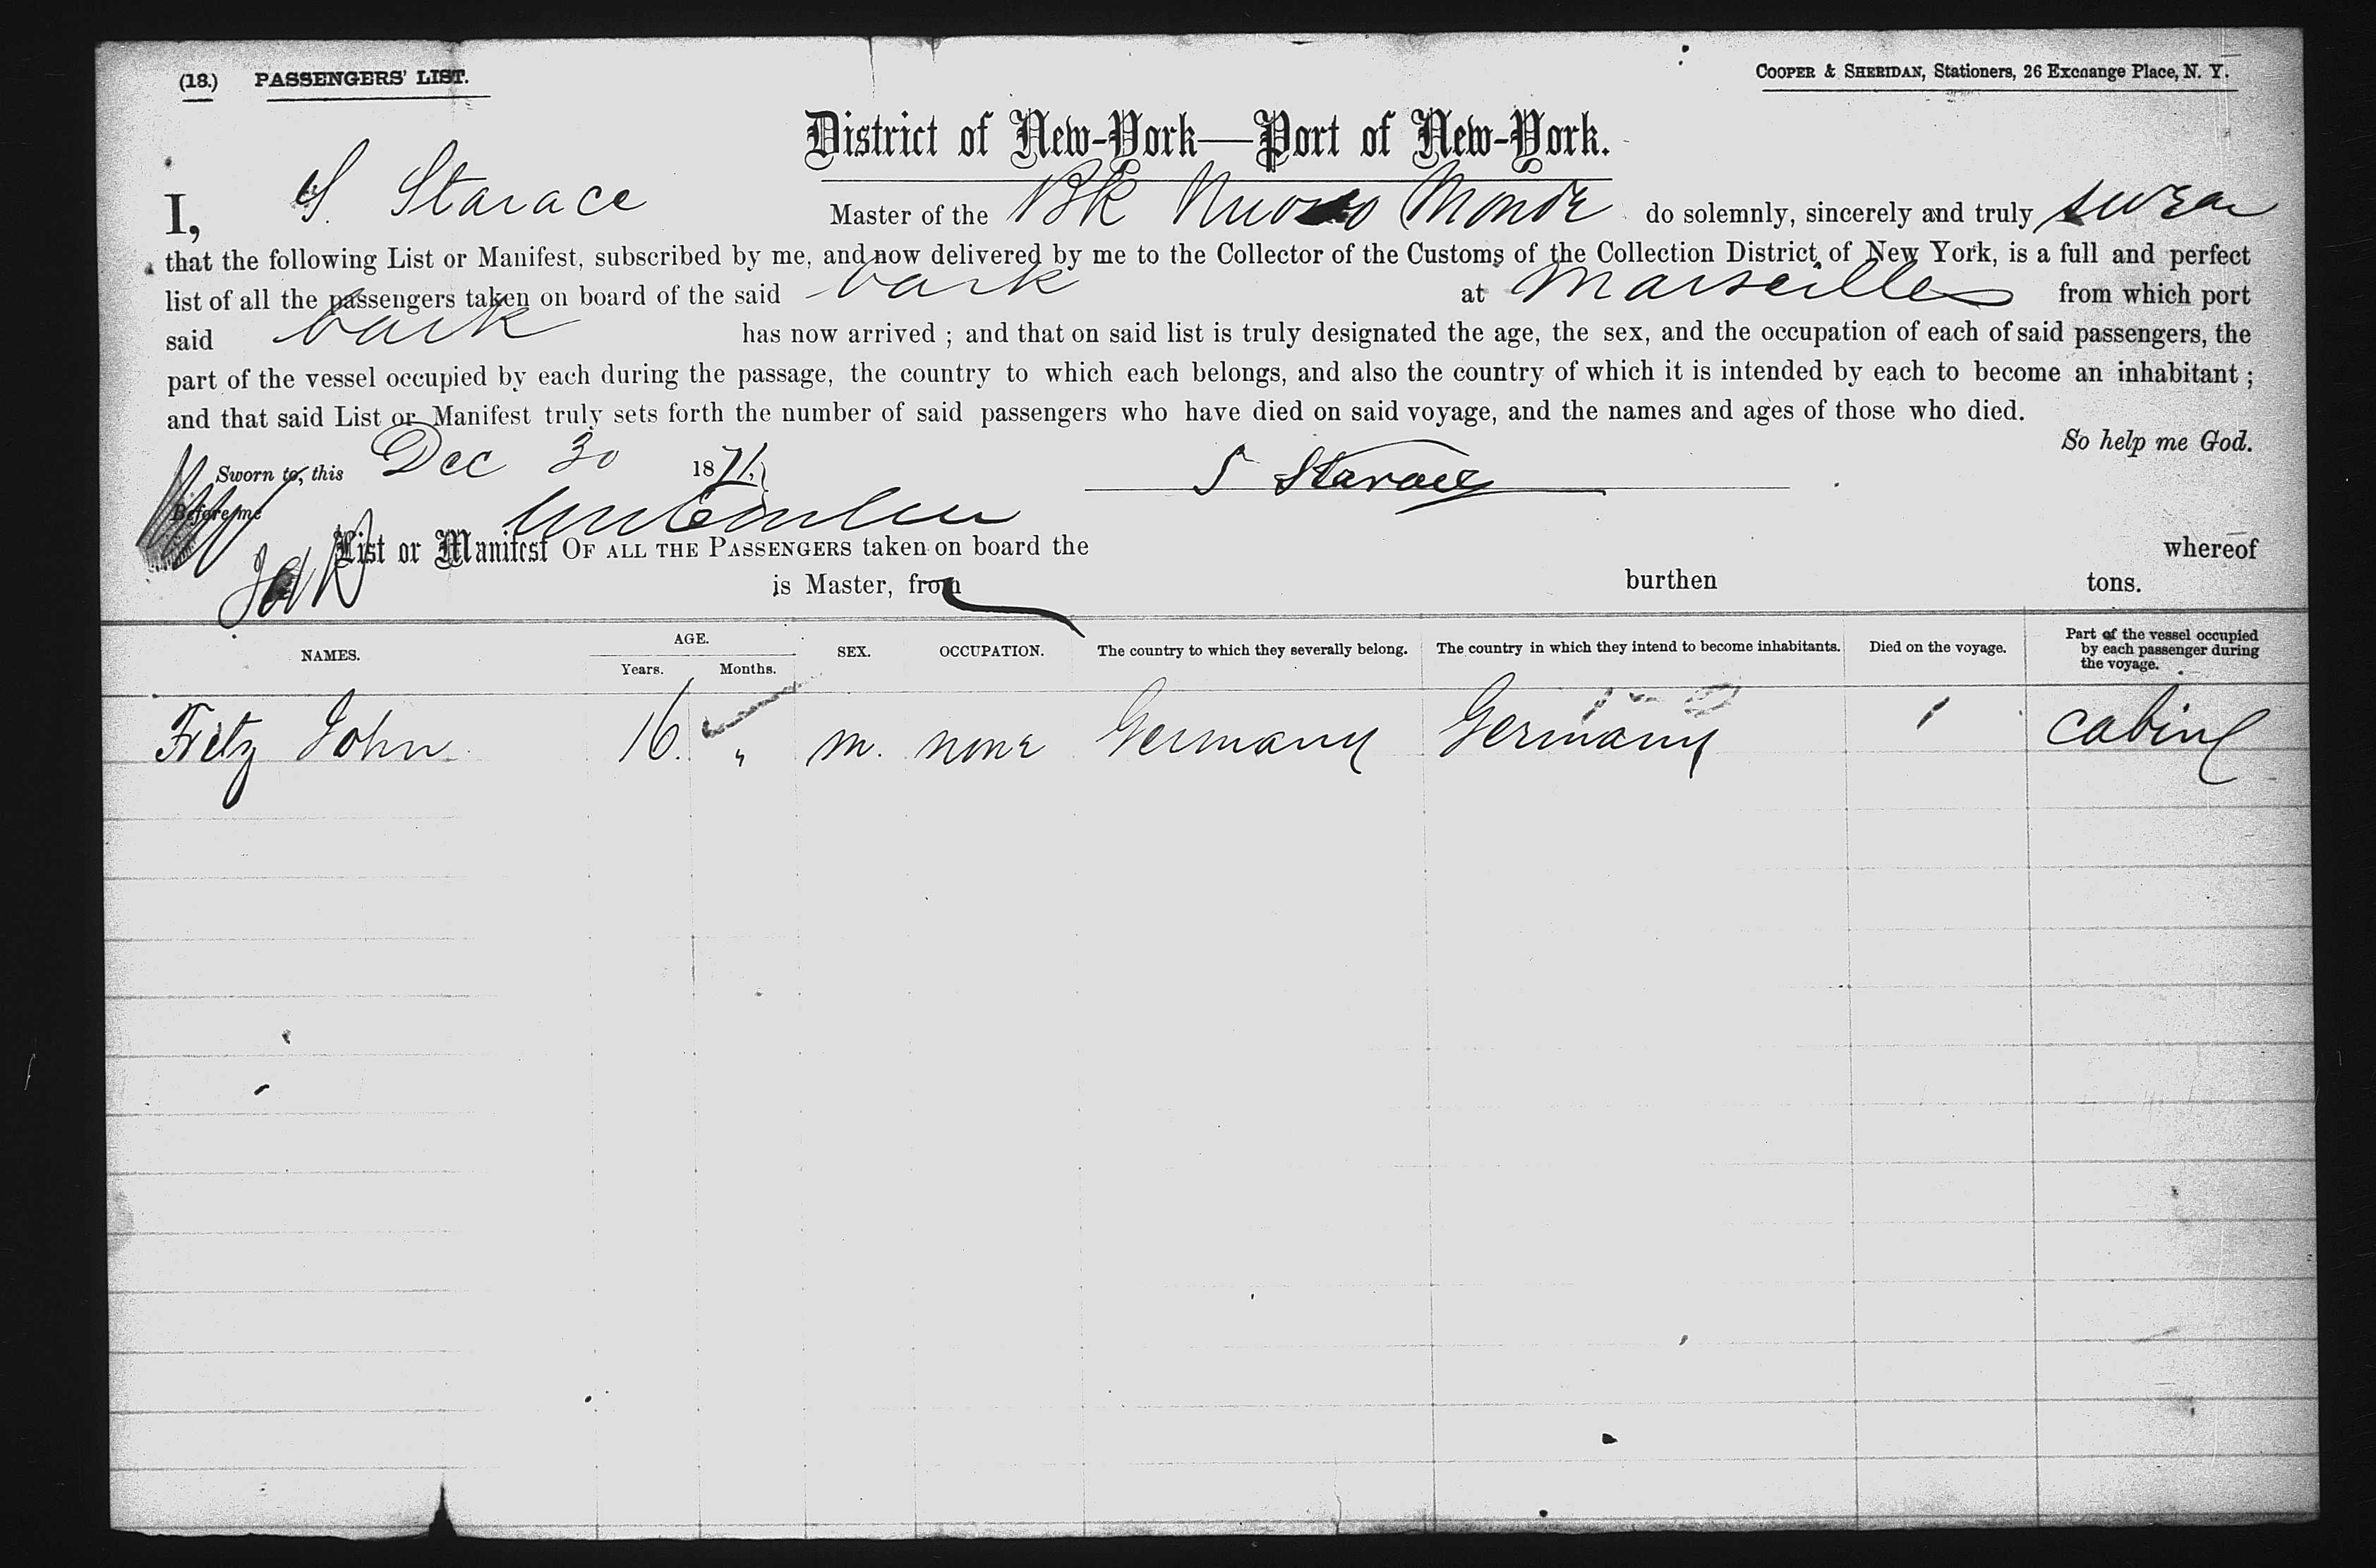 (18.) PASSENGERS' LIST.
COOPER & SHERIDAN, Stationers, 26 Exchange Place, N. Y.
District of New-York—Port of New-York.
I, S. Starace Master of the Bk Nuovo Monde do solemnly, sincerely and truly swear
that the following List or Manifest, subscribed by me, and now delivered by me to the Collector of the Customs of the Collection District of New York, is a full and perfect
list of all the passengers taken on board of the said bark at Marseilles from which port
said bark has now arrived ; and that on said list is truly designated the age, the sex, and the occupation of each of said passengers, the
part of the vessel occupied by each during the passage, the country to which each belongs, and also the country of which it is intended by each to become an inhabitant ;
and that said List or Manifest truly sets forth the number of said passengers who have died on said voyage, and the names and ages of those who died.
So help me God.
Sworn to, this Dec 30 1871. S Starace
Before me
List or Manifest OF ALL THE PASSENGERS taken on board the whereof
is Master, from burthen tons.
NAMES. AGE. Years. Months. SEX. OCCUPATION. The country to which they severally belong. The country in which they intend to become inhabitants. Died on the voyage. Part of the vessel occupied by each passenger during the voyage.
Fritz John 16. " m. none Germany Germany / cabin